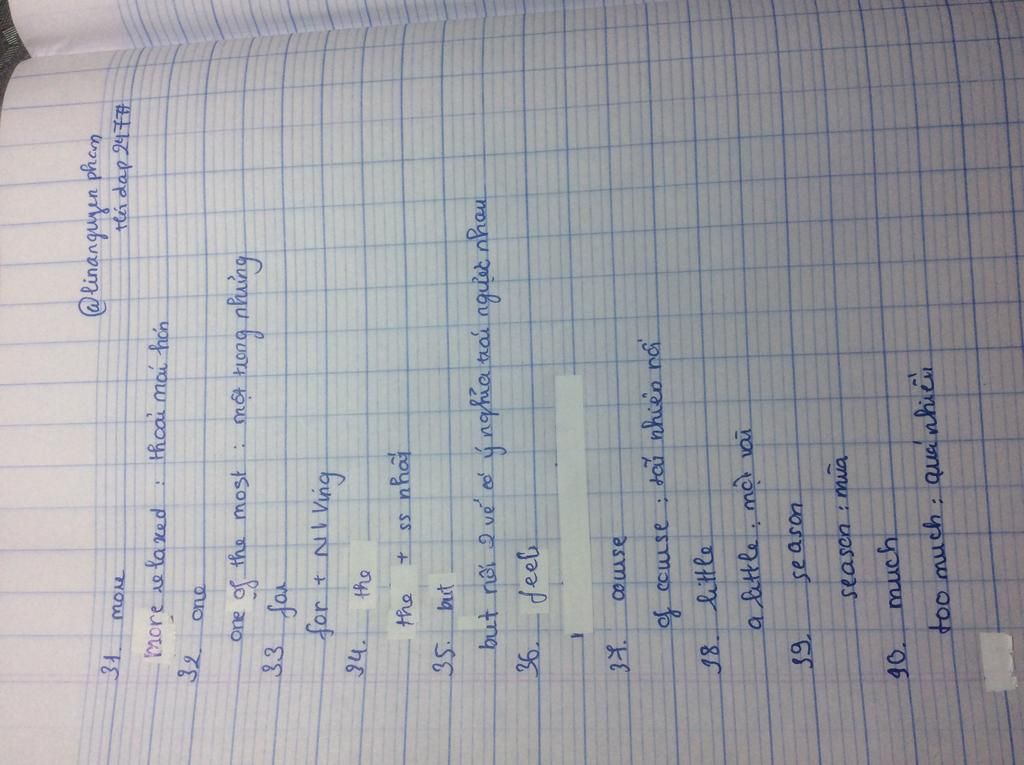 @linanguyen pham
Hỏi đáp 247##
31. more
more relaxed : thoải mái hơn
32. one
one of the most : một trong những
33 for
for + N / Ving
34. the
the + ss nhất
35. but
but nối 2 vế có ý nghĩa trái ngược nhau
36. feels
37. course
of course : tất nhiên rồi
38. little
a little : một vài
39. season
season : mùa
40. much
too much : quá nhiều